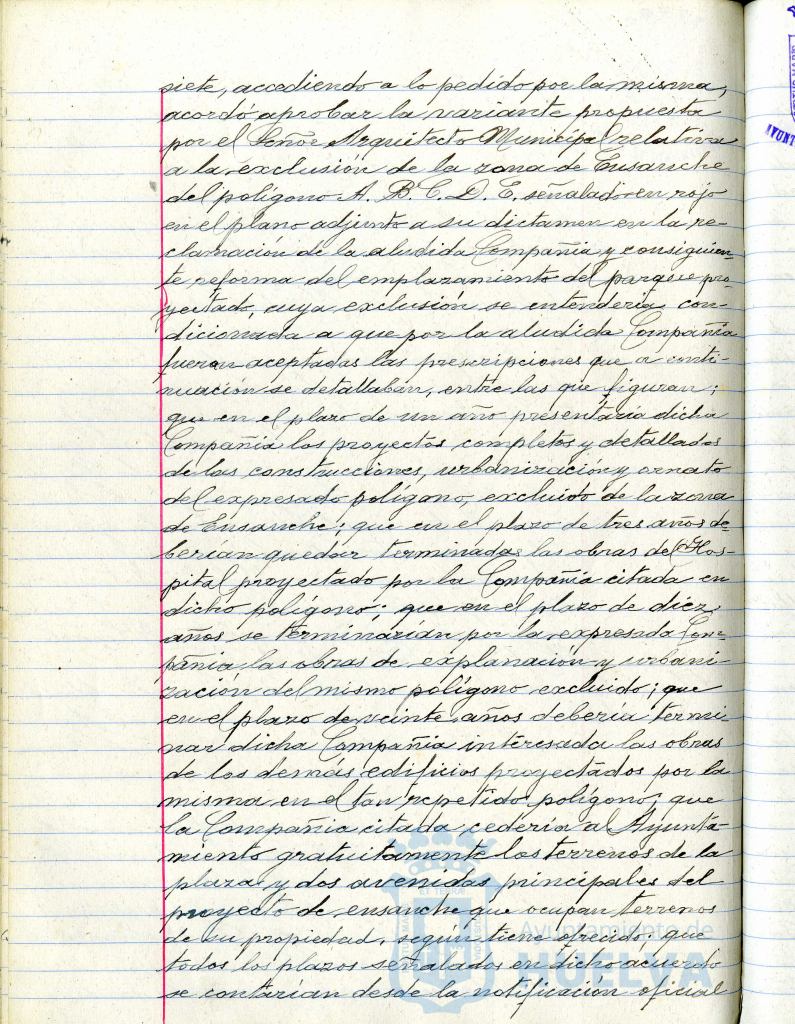 siete, accediendo a lo pedido por la misma,
acordó aprobar la variante propuesta
por el Señor Arquitecto Municipal relativa
a la exclusión de la zona de Ensanche
del polígono A. B. C. D. E. señalado en rojo
en el plano adjunto a su dictamen en la re-
clamación de la aludida Compañia y consiguien-
te reforma del emplazamiento del parque pro-
yectado, cuya exclusión se entenderia con-
dicionada a que por la aludida Compañia
fueran aceptadas las prescripciones que a conti-
nuación se detallaban, entre las que figuran;
que en el plazo de un año presentaria dicha
Compañia los proyectos completos y detallados
de las construcciones, urbanización y ornato
del expresado polígono, excluido de la zona
de Ensanche; que en el plazo de tres años de-
berían quedar terminadas las obras del Hos-
pital proyectado por la Compañia citada en
dicho polígono; que en el plazo de diez
años se terminarían por la expresada Com-
pañia las obras de explanación y urbani-
zación del mismo polígono excluido; que
en el plazo de veinte años debería termi-
nar dicha Compañia interesada las obras
de los demás edificios proyectados por la
misma en el tan repetido polígono; que
la Compañia citada cederia al Ayunta-
miento gratuitamente los terrenos de la
plaza y dos avenidas principales del
proyecto de ensanche que ocupan terrenos
de su propiedad, según tiene ofrecido; que
todos los plazos señalados en dicho acuerdo
se contarían desde la notificación oficial
Ayuntamiento de
HUELVA